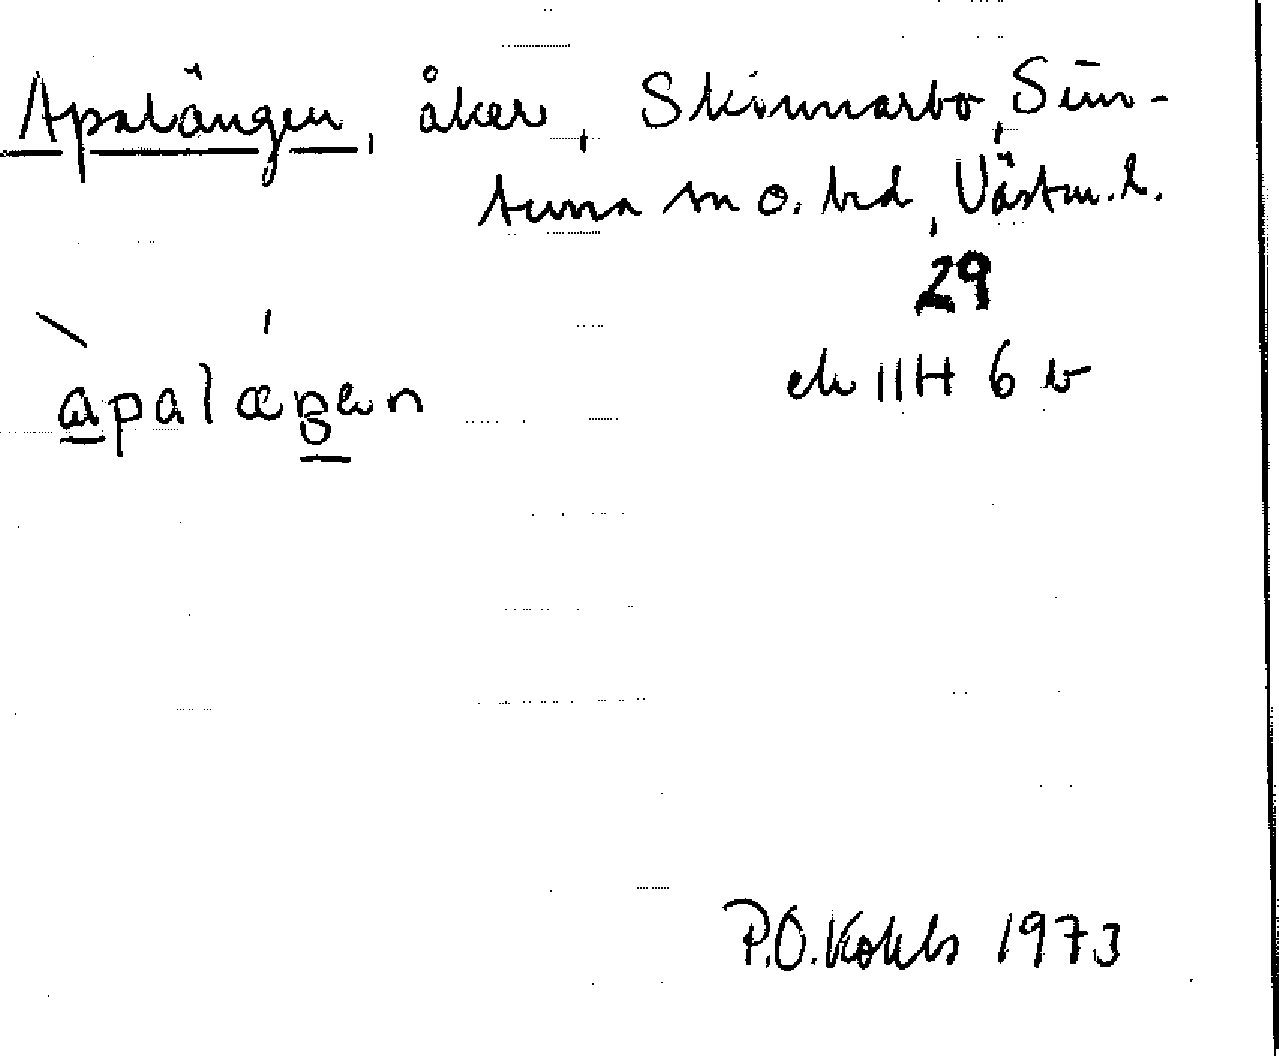 Apalängen, åker, Skinnarbo, Sim-
tuna sn o. hd, Västm. l.
29
ek 11H 6 b
apalæŋen
P.O. Kohls 1973